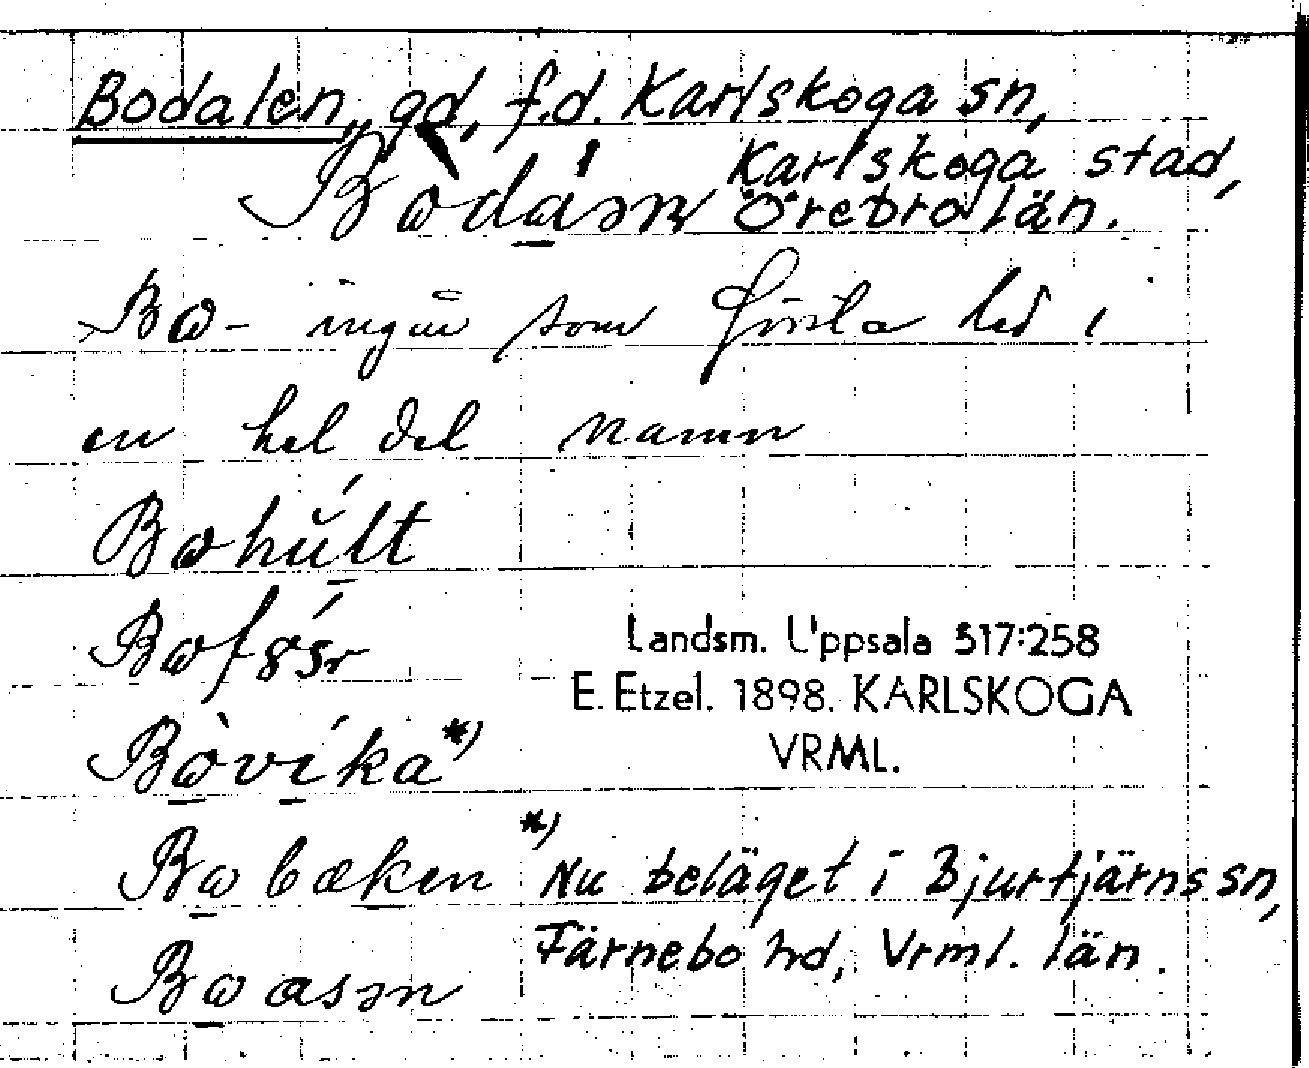 Bodalen, gd, f.d. Karlskoga sn,
Karlskoga stad,
Örebro län.
Bω- ingår som första led i
en hel del namn
Bωhúlt
Landsm. Uppsala 517:258
E. Etzel. 1898. KARLSKOGA
VRML.
Bὼvíka *)
Bωbæken
*) Nu beläget i Bjurtjärns sn,
Färnebo hd, Vrml. län.